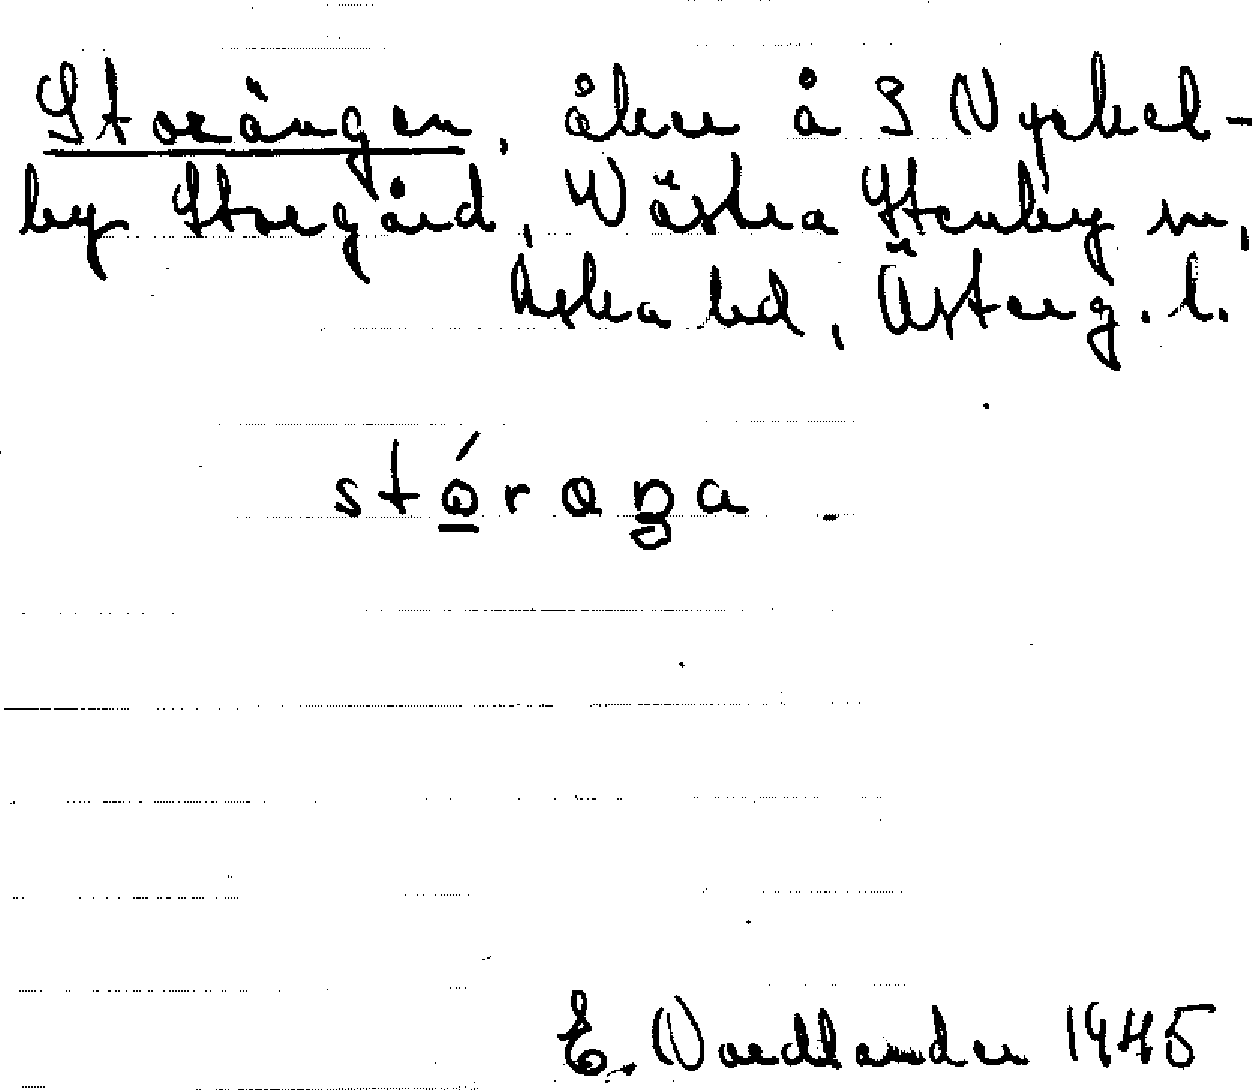 Storängen, åker å S Nyckel-
by Storgård, Västra Stenby sn,
Aska hd, Österg. l.
stó̲raŋa.
E. Nordlander 1945